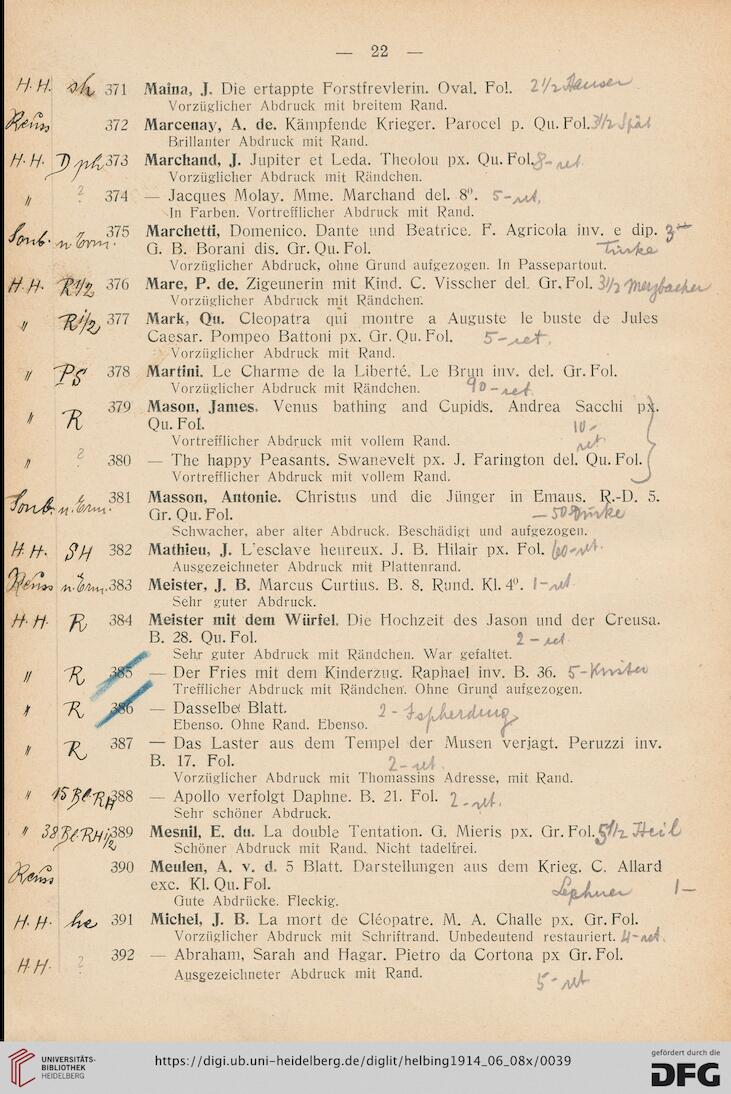 — 22 —
H. H. sh 371 Maina, J. Die ertappte Forstfrevlerin. Oval. Fol. 2 1/2 Hauser
Vorzüglicher Abdruck mit breitem Rand.
Reuss 372 Marcenay, A. de. Kämpfende Krieger. Parocel p. Qu. Fol. 3 1/2 Spät
Brillanter Abdruck mit Rand.
H. H. D ph 373 Marchand, J. Jupiter et Leda. Theolou px. Qu. Fol. 8 - ret.
Vorzüglicher Abdruck mit Rändchen.
" ? 374 — Jacques Molay. Mme. Marchand del. 8°. 5 - ret.
In Farben. Vortrefflicher Abdruck mit Rand.
n. Erm. 375 Marchetti, Domenico. Dante und Beatrice. F. Agricola inv. e dip. 3 -
G. B. Borani dis. Gr. Qu. Fol.
Vorzüglicher Abdruck, ohne Grund aufgezogen. In Passepartout.
H. H. R 1/2 376 Mare, P. de. Zigeunerin mit Kind. C. Visscher del. Gr. Fol. 3 1/2
Vorzüglicher Abdruck mit Rändchen.
" R 1/2 377 Mark, Qu. Cleopatra qui montre a Auguste le buste de Jules
Caesar. Pompeo Battoni px. Gr. Qu. Fol. 5 - ret.
Vorzüglicher Abdruck mit Rand.
" PS 378 Martini. Le Charme de la Liberté. Le Brun inv. del. Gr. Fol.
Vorzüglicher Abdruck mit Rändchen. 90 - ret.
" R 379 Mason, James. Venus bathing and Cupids. Andrea Sacchi px.
Qu. Fol. 10 -
Vortrefflicher Abdruck mit vollem Rand. ret
" ? 380 — The happy Peasants. Swanevelt px. J. Farington del. Qu. Fol.
Vortrefflicher Abdruck mit vollem Rand.
n. Erm. 381 Masson, Antonie. Christus und die Jünger in Emaus. R.-D. 5.
Gr. Qu. Fol. — 50
Schwacher, aber alter Abdruck. Beschädigt und aufgezogen.
H. H. SH 382 Mathieu, J. L'esclave heureux. J. B. Hilair px. Fol. 60 - ret.
Ausgezeichneter Abdruck mit Plattenrand.
Reuss n. Erm. 383 Meister, J. B. Marcus Curtius. B. 8. Rund. Kl. 4°. 1 - ret
Sehr guter Abdruck.
H. H. R 384 Meister mit dem Würfel. Die Hochzeit des Jason und der Creusa.
B. 28. Qu. Fol. 2 - ret
Sehr guter Abdruck mit Rändchen. War gefaltet.
" R 385 — Der Fries mit dem Kinderzug. Raphael inv. B. 36. 5 -
Trefflicher Abdruck mit Rändchen. Ohne Grund aufgezogen.
" R 386 — Dasselbe Blatt. 2 -
Ebenso. Ohne Rand. Ebenso.
" R 387 — Das Laster aus dem Tempel der Musen verjagt. Peruzzi inv.
B. 17. Fol. 2 - ret.
Vorzüglicher Abdruck mit Thomassins Adresse, mit Rand.
" 15 Bl. RH 388 — Apollo verfolgt Daphne. B. 21. Fol. 2 - ret.
Sehr schöner Abdruck.
" 38 Bl. RH 1/2 389 Mesnil, E. du. La double Tentation. G. Mieris px. Gr. Fol. 5 1/2 Heil
Schöner Abdruck mit Rand. Nicht tadelfrei.
Reuss 390 Meulen, A. v. d. 5 Blatt. Darstellungen aus dem Krieg. C. Allard
exc. Kl. Qu. Fol. 1 —
Gute Abdrücke. Fleckig.
H. H. he 391 Michel, J. B. La mort de Cléopatre. M. A. Challe px. Gr. Fol.
Vorzüglicher Abdruck mit Schriftrand. Unbedeutend restauriert. 4 - ret.
H. H. ? 392 — Abraham, Sarah and Hagar. Pietro da Cortona px Gr. Fol.
Ausgezeichneter Abdruck mit Rand. 5 - ret
UNIVERSITÄTS-
BIBLIOTHEK
HEIDELBERG
https://digi.ub.uni-heidelberg.de/diglit/helbing1914_06_08x/0039
gefördert durch die
DFG